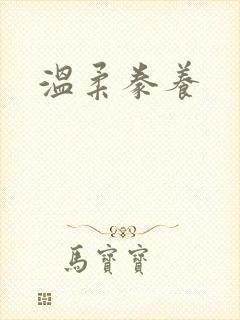 溫柔豢養
馬寶寶